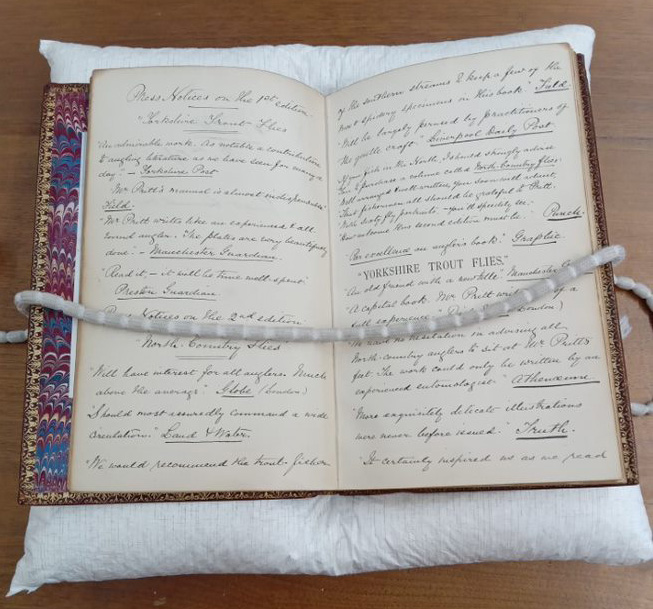 Press Notices on the 1st edition
"Yorkshire Trout Flies
"An admirable work. As notable a contribution
to angling literature as we have seen for many a
day" – Yorkshire Post
"Mr Pritt's manual is almost indispensable"
Field.
"Mr Pritt writes like an experienced & all
round angler. The plates are very beautifully
done" – Manchester Guardian.
"Read it – it will be time well spent"
Preston Guardian.
Press Notices on the 2nd edition
"North Country Flies"
"Will have interest for all anglers. Much
above the average". Globe (London)
"Should most assuredly command a wide
circulation." Land & Water.
"We would recommend the trout-fisher
of the southern streams to keep a few of the
most spidery specimens in his book". Field.
"Will be largely perused by practitioners of
the gentle craft." Liverpool Daily Post
If you fish in the North, I should strongly advise
You to purchase a volume called North-Country flies
Well arranged & well written, you soon will admit,
That fishermen all should be grateful to Pritt.
With sixty fly portraits – you'll speedily see
How welcome this second edition must be. Punch.
"Par excellence an angler's book". Graphic
"YORKSHIRE TROUT FLIES."
"An old friend with a new title" Manchester
"A capital book. Mr Pritt writes of a
full experience" London)
"We have no hesitation in advising all
North-country anglers to sit at Mr Pritt's
feet. The work could only be written by an
experienced entomologist". Athenæum.
"More exquisitely delicate illustrations
were never before issued." Truth.
"It certainly inspired us as we read